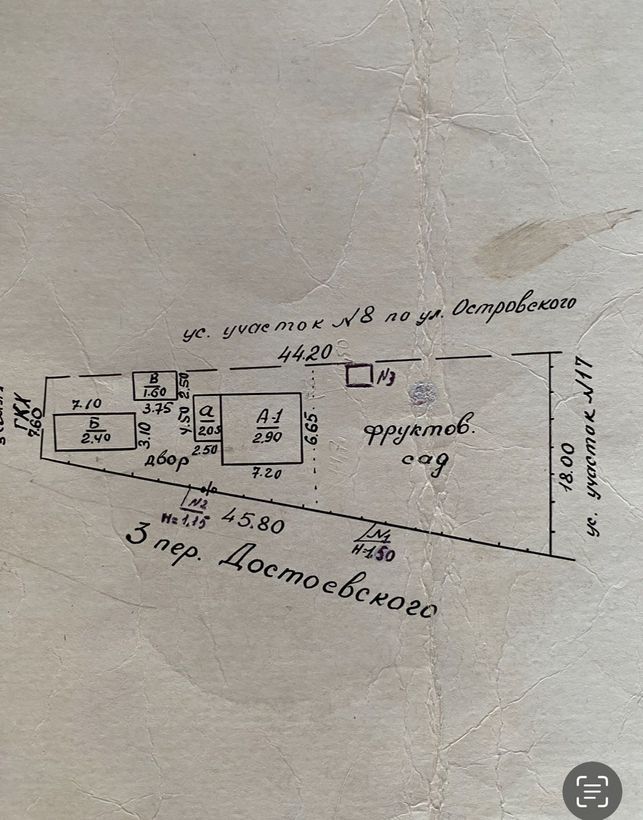 ус. участок №8 по ул. Островского
44.20
ГКХ
7.60
В
1.60
2.50
3.75
№3
7.10
Б
2.40
3.10
4.50
а
2.05
2.50
А-1
2.90
6.65
7.20
фруктов.
сад
двор
18.00
ус. участок №17
№2
H=1,15
45.80
№1
H=1,50
3 пер. Достоевского